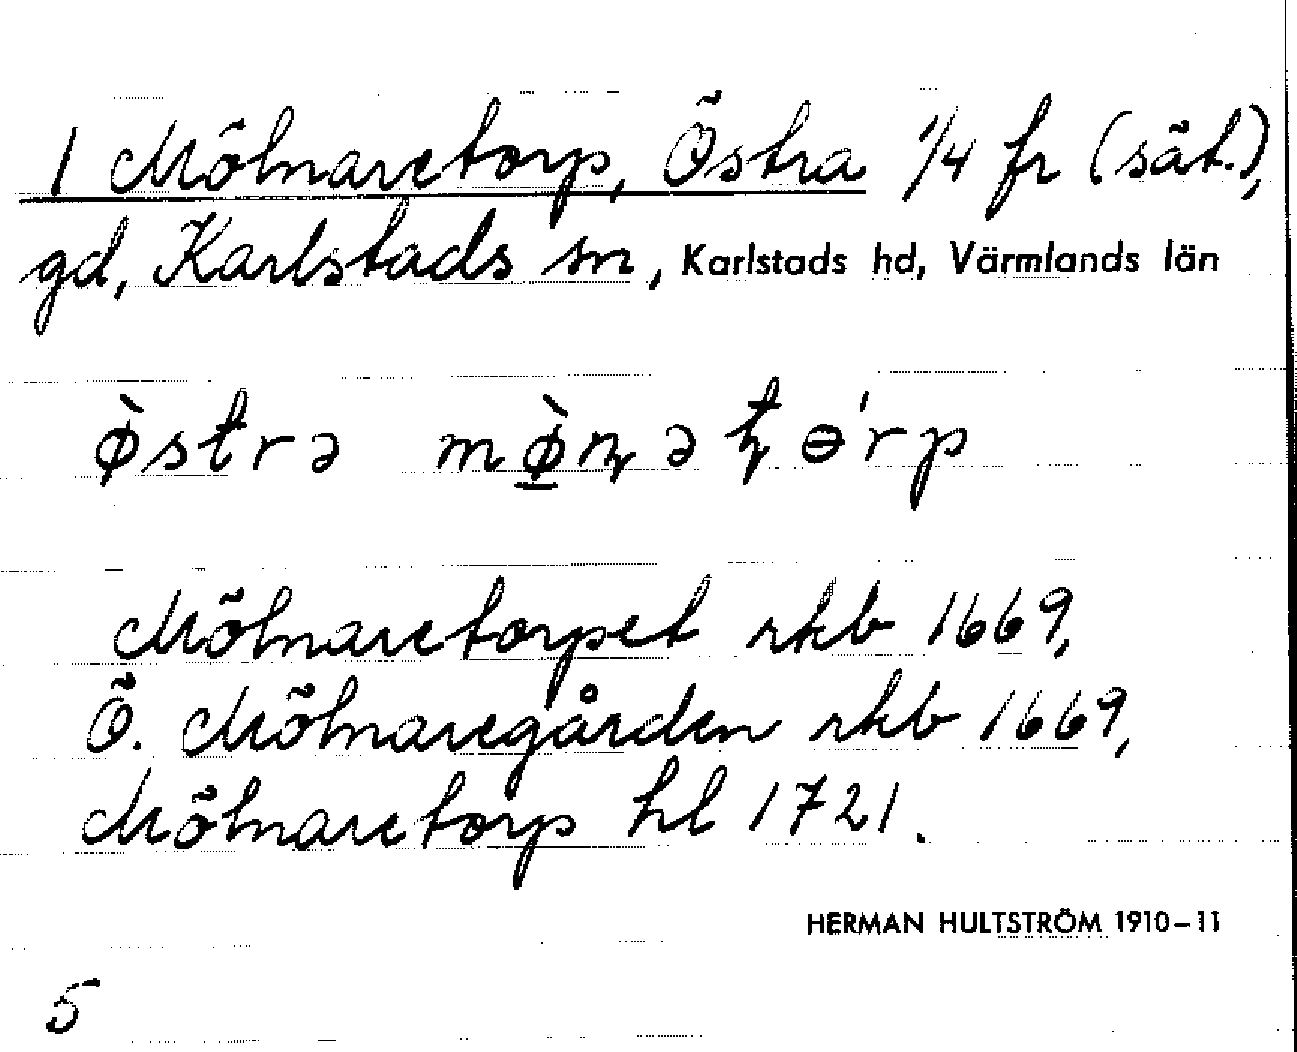 1 Mölnaretorp, Östra 1/4 fr (sät.),
gd, Karlstads sn, Karlstads hd, Värmlands län
ø̀strə mø̠̀ɳəʈɵ́rp
Mölnaretorpet rkb 1669,
Ö. Mölnaregården rkb 1669,
Mölnaretorp hl 1721.
HERMAN HULTSTRÖM 1910–11
5